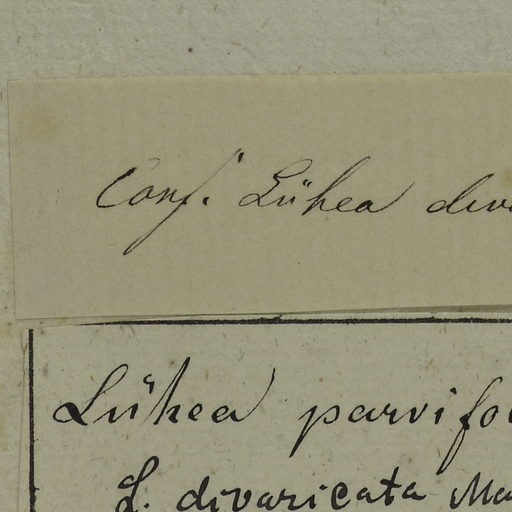 Conf. Lühea diva
Lühea parvifo
L. divaricata Ma